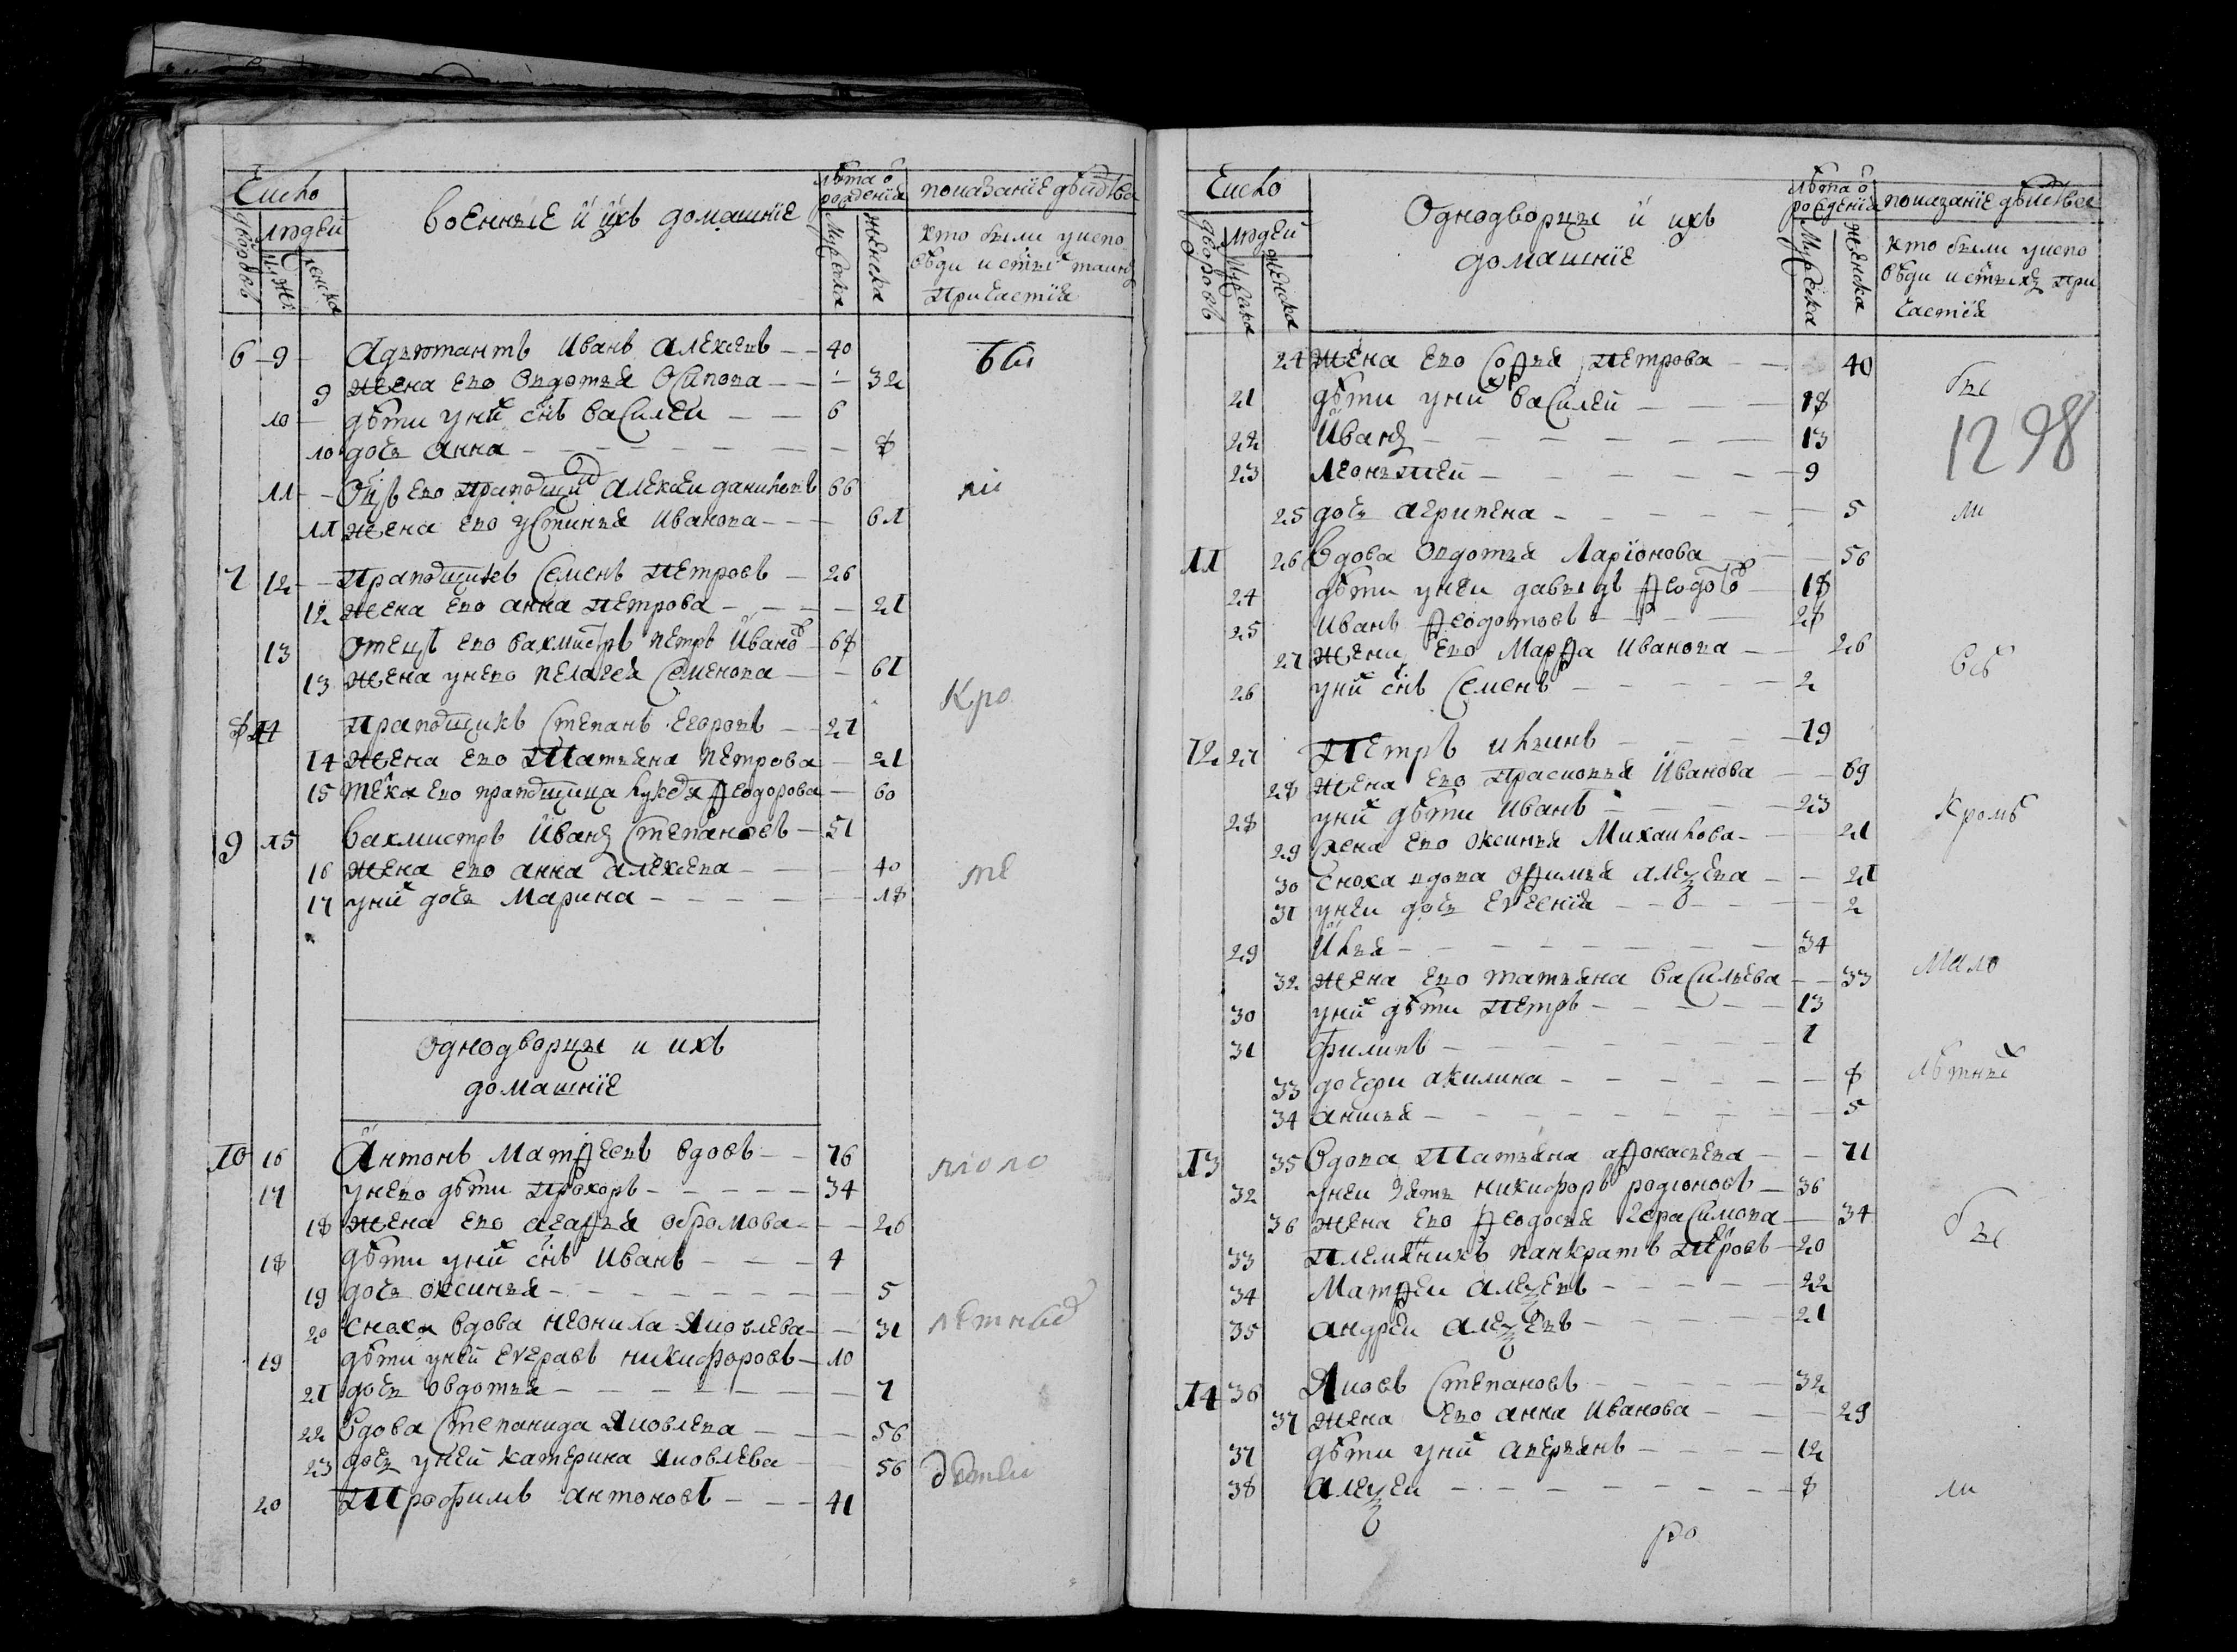 Число
людей
дворовъ
мужска
женска
военные и ихъ домашние
лѣта о
рожденiя
мужска
женска
показанiе дѣйства
кто были у испо
вѣди и с҃тыхъ таинъ
причастiя
6 9 Адъютантъ Иванъ Алексевъ 40
9 жена ево Овдотья Осипова 32
10 дѣти у ни сн҃ъ Василеи 6
10 дочь Анна 8
11 Оц҃ъ ево прапощи Алексеи Даниловъ 66
11 жена ево Устинья Иванова 61
7 12 прапощикъ Семенъ Петровъ 26
12 жена ево Анна Петрова 21
13 отецъ ево вахмистръ Петръ Ивано 68
13 жена у нево Пелагея Семенова 61
8 14 прапощикъ Степанъ Егоровъ 27
14 жена ево Татьяна Петрова 21
15 ево прапощица Лукедя Ѳеодорова 60
9 15 вахмистръ Иванъ Степановъ 51
16 жена ево Анна Алексева 40
17 у ни дочь Марина 18
Однодворцы и ихъ
домашнiе
10 16 Антонъ Матѳеевъ вдовъ 76
17 у нево дѣти Прохоръ 34
18 жена ево Агаѳья Обромова 26
18 дѣти у ни сн҃ъ Иванъ 4
19 дочь Оксинья 5
20 сноха вдова Неонила Яковлева 31
19 дѣти у неи Евграѳъ Никифоровъ 10
21 дочь Овдотья 7
22 вдова Степанида Яковлева 56
23 дочь у неи Катерина Яковлева 56
20 Трофимъ Антоновъ 41
бы
ли
кро
ме
мало
лѣтны
дѣтеи
Число
людей
дворовъ
мужска
женска
Однодворцы и ихъ
домашнiе
лѣта о
рожденiя
мужска
женска
показанiе дѣйства
кто были у испо
вѣди и с҃тыхъ при
частiя
24 жена ево Софья Петрова 40
21 дѣти у ни Василей 18
22 Иванъ 13
23 Леонътей 9
25 дочь Агрипена 5
11 26 вдова Овдотья Ларiонова 56
24 дѣти у неи Давыдъ Ѳеодото 18
25 Иванъ Ѳеодотовъ 28
27 жена ево Марѳа Иванова 26
26 у ни сн҃ъ Семенъ 2
12 27 Петръ Ильинъ 79
28 жена ево Прасковья Иванова 69
28 у ни дѣти Иванъ 23
29 жена ево Оксинья Михаилова 21
30 сноха вдова Оѳимья Алеѯева 21
31 у неи дочь Евгенiя 2
29 Илья 34
32 жена ево Татьяна Васильева 33
30 у ни дѣти Петръ 13
31 Филипъ 7
33 дочери Акилина 8
34 Анисья 5
13 35 вдова Татьяна Аѳонасьева 71
32 у неи зять Никифоръ Родионовъ 36
36 жена ево Ѳеодосья Герасимова 34
33 племяникъ Панкратъ Петровъ 20
34 Матѳеи Алеѯевъ 22
35 Андреи Алеѯевъ 21
14 36 Яковъ Степановъ 32
37 жена ево Анна Иванова 29
37 дѣти у ни Аверьянъ 12
38 Алеѯеи 8
бы
1298
ли
всѣ
Кромѣ
мало
лѣтные
бы
ли
ро